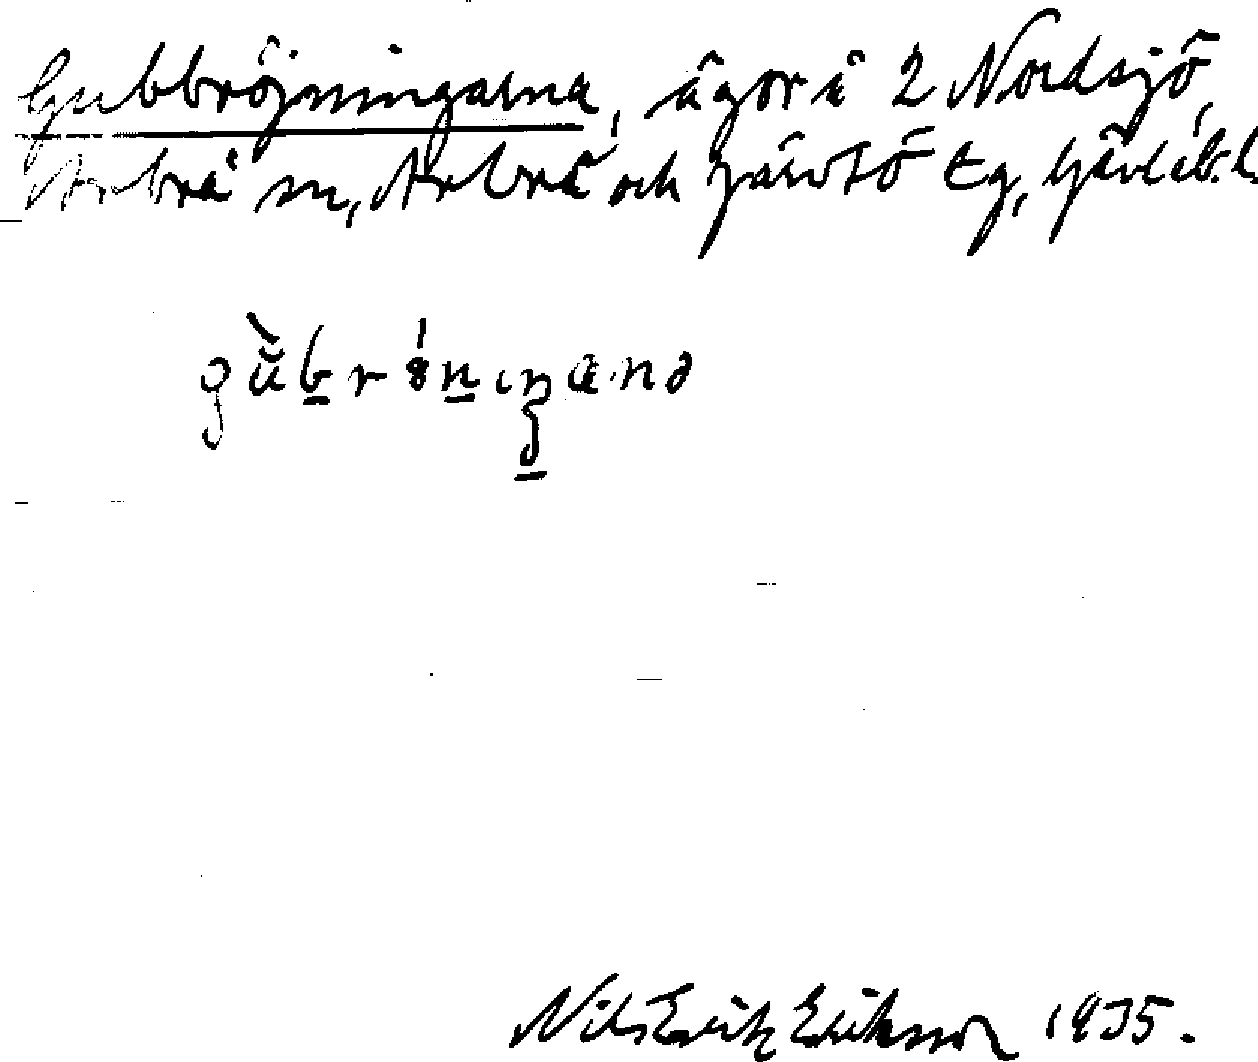 Gubbröjningarna, ägor å 2 Nordsjö,
Arbrå sn, Arbrå och Järvsö tg, Gävleb. l.
Nils Erik Eriksson 1935.